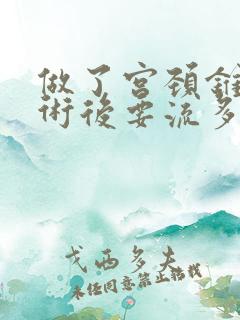 做了宫颈錐
術後要流多
戈西多夫
未经同意禁止转载